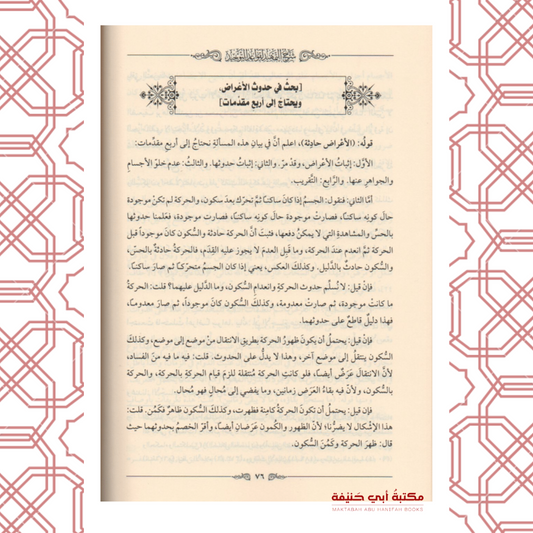 [بحثٌ في حدوث الأعراض
ويحتاج إلى أربع مقدّمات]
قولُه: (الأَعْراض حادِثة)، اعلم أنَّ في بيان هذه المسألةِ نحتاجُ إلى أربع مقدّمات:
الأوَّل: إثباتُ الأعراض، وقد مرّ. والثاني: إثباتُ حدوثِها. والثالثُ: عدم خلوّ الأجسام
والجواهر عنها. والرَّابع: التَّقريب.
أمّا الثاني: فنقول: الجسمُ إذا كان ساكنًا ثمَّ تحرّك بعدَ سكونٍ، والحركة لم تكنْ موجودة
حالَ كونِه ساكنًا، فصارتْ موجودة حالَ كونِه ساكنًا، فصارت موجودة، فعَلمنا حدوثها
بالحسِّ والمشاهدةِ التي لا يمكنُ دفعها، فثبت أنَّ الحركة حادثة والسُّكون كانَ موجوداً قبل
الحركة ثمَّ انعدم عندَ الحركة، وما قَبِل العدم لا يجوز عليه القِدَم، فالحركةُ حادثةٌ بالحسّ،
والسُّكون حادثٌ بالدَّليل. وكذلكَ العكس، يعني إذا كان الجسمُ متحرّكًا ثم صارَ ساكنًا.
فإنْ قيل: لا نُسلِّم حدوث الحركةِ وانعدام السُّكون، وما الدَّليل عليهما؟ قلت: الحركةُ
ما كانتْ موجودة، ثم صارت معدومة، وكذلك السُّكون كانَ موجوداً، ثم صارَ معدوماً،
فهذا دليلٌ قاطعٌ على حدوثِهما.
فإنْ قيل: يحتملُ أن يكونَ ظهورُ الحركةِ بطريقِ الانتقال منْ موضع إلى موضع، وكذلكَ
السُّكون ينتقلُ إلى موضعٍ آخر، وهذا لا يدلُّ على الحدوث. قلت: فيه ما فيه منَ الفساد،
لأنَّ الانتقال عَرَضٌ أيضًا، فلو كانت الحركةُ مُنتقلة للزمَ قيام الحركةِ بالحركة، والحركة
بالسُّكون، ولأنَّ فيه بقاءُ العَرَض زمانَين، وما يفضي إلى مُحالٍ فهو مُحال.
فإن قيل: يحتملُ أن تكونَ الحركةُ كامِنة فظهرت، وكذلكَ السُّكون ظاهرٌ فكَمُن. قلت:
هذا الإشكال لا يضرُّنا؛ لأنَّ الظهور والكُمون عَرَضان أيضًا، وأقرَّ الخصمُ بحدوثهما حيث
قال: ظهرَ الحركة وكَمُنَ السُّكون.
٧٦
مكتبة أبي حنيفة
MAKTABAH ABU HANIFAH BOOKS